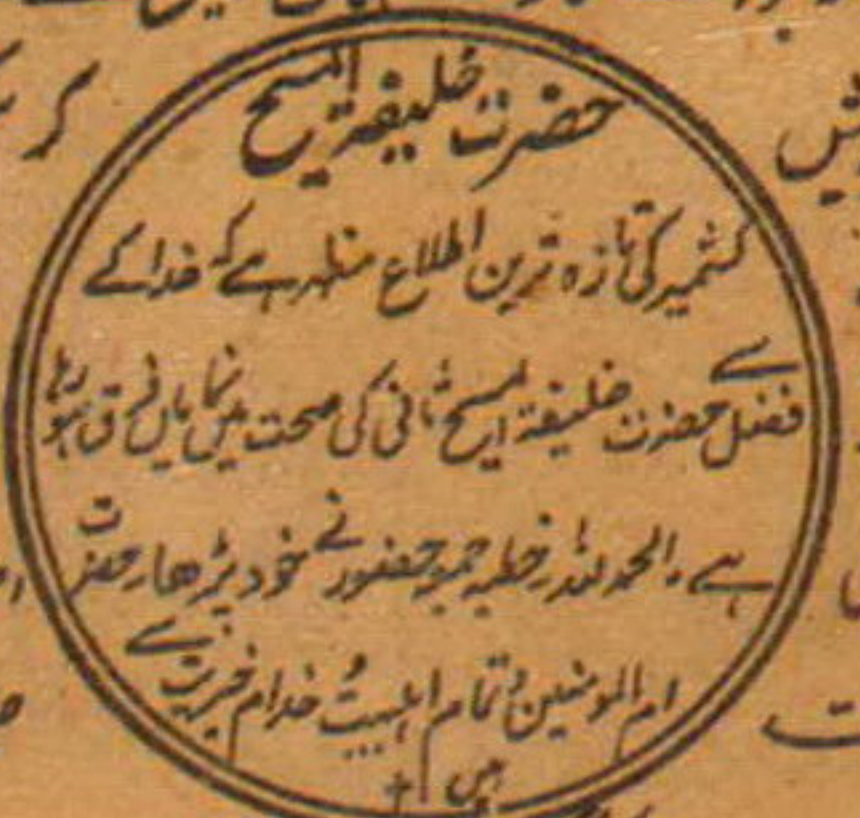 حضرت خلیفۃ المسیح
کشمیر کی تازہ ترین اطلاع مظہر ہے کہ خدا کے
فضل سے حضرت خلیفۃ المسیح ثانی کی صحت میں نمایاں فرق ہو رہا
ہے۔ الحمد للہ۔ خطبہ جمعہ حضور نے خود پڑھا۔ حضرت
ام المومنین و تمام اہلبیت و خدام خیریت سے
ہیں